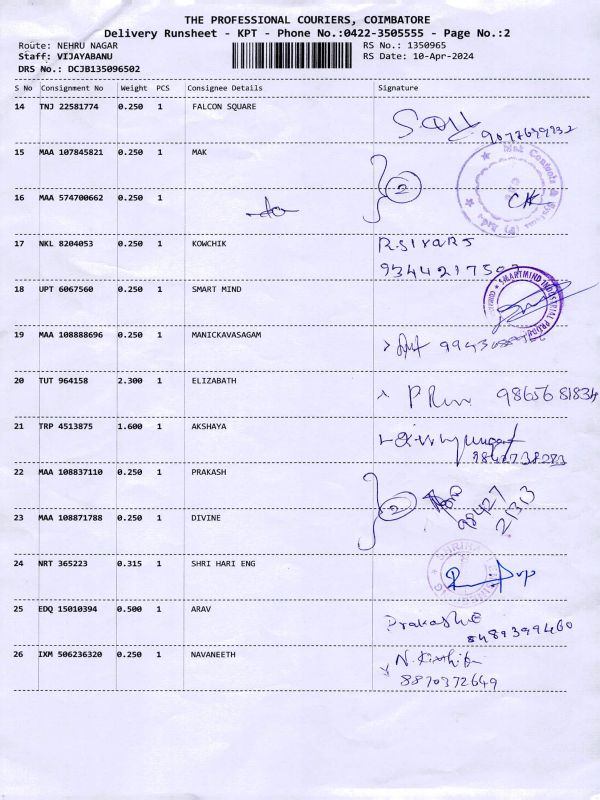 THE PROFESSIONAL COURIERS, COIMBATORE
Delivery Runsheet - KPT - Phone No.:0422-3505555 - Page No.:2
Route: NEHRU NAGAR RS No.: 1350965
Staff: VIJAYABANU RS Date: 10-Apr-2024
DRS No.: DCJB135096502
S No Consignment No Weight PCS Consignee Details Signature
14 TNJ 22581774 0.250 1 FALCON SQUARE
15 MAA 107845821 0.250 1 MAK
2
16 MAA 574700662 0.250 1
17 NKL 8204053 0.250 1 KOWCHIK R.SIVARJ
18 UPT 6067560 0.250 1 SMART MIND
SMARTMIND INDUSTRIAL
19 MAA 108888696 0.250 1 MANICKAVASAGAM
20 TUT 964158 2.300 1 ELIZABATH
21 TRP 4513875 1.600 1 AKSHAYA
22 MAA 108837110 0.250 1 PRAKASH
2 98427
23 MAA 108871788 0.250 1 DIVINE
24 NRT 365223 0.315 1 SHRI HARI ENG
25 EDQ 15010394 0.500 1 ARAV
8489399460
26 IXM 506236320 0.250 1 NAVANEETH
8870372649